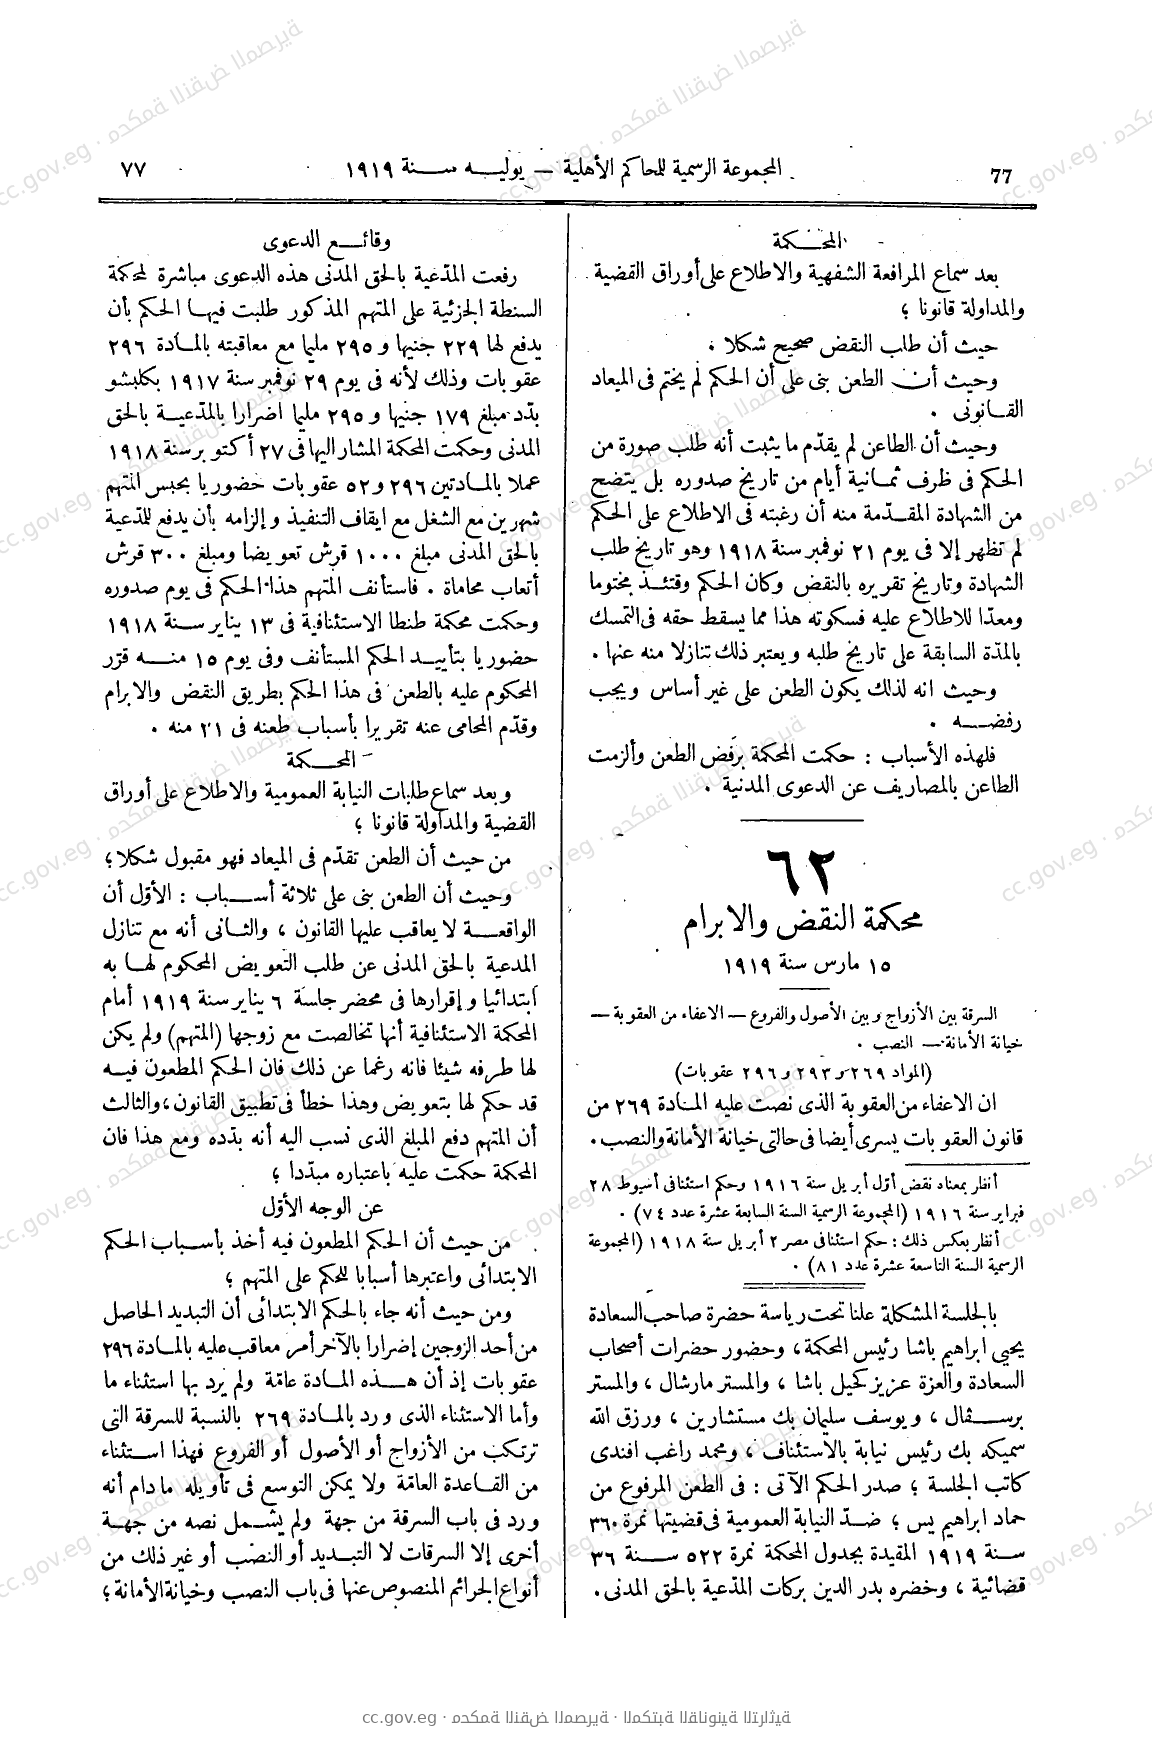 77
المجموعة الرسمية للمحاكم الأهلية — يوليه سنة ١٩١٩
٧٧
المحكمة
بعد سماع المرافعة الشفهية والاطلاع على أوراق القضية
والمداولة قانونا ؛
حيث أن طلب النقض صحيح شكلا .
وحيث أن الطعن بنى على أن الحكم لم يختم فى الميعاد
القانونى .
وحيث أن الطاعن لم يقدّم ما يثبت أنه طلب صورة من
الحكم فى ظرف ثمانية أيام من تاريخ صدوره بل يتضح
من الشهادة المقدّمة منه أن رغبته فى الاطلاع على الحكم
لم تظهر إلا فى يوم ٢١ نوفمبر سنة ١٩١٨ وهو تاريخ طلب
الشهادة وتاريخ تقريره بالنقض وكان الحكم وقتئذ مختوما
ومعدّا للاطلاع عليه فسكوته هذا مما يسقط حقه فى التمسك
بالمدّة السابقة على تاريخ طلبه ويعتبر ذلك تنازلا منه عنها .
وحيث انه لذلك يكون الطعن على غير أساس ويجب
رفضه .
فلهذه الأسباب : حكمت المحكمة برفض الطعن وألزمت
الطاعن بالمصاريف عن الدعوى المدنية .
٦٢
محكمة النقض والابرام
١٥ مارس سنة ١٩١٩
السرقة بين الأزواج وبين الأصول والفروع — الاعفاء من العقوبة —
خيانة الأمانة — النصب .
(المواد ٢٦٩ و ٢٩٣ و ٢٩٦ عقوبات)
ان الاعفاء من العقوبة الذى نصت عليه المادة ٢٦٩ من
قانون العقوبات يسرى أيضا فى حالتى خيانة الأمانة والنصب .
أنظر بمعناه نقض أوّل أبريل سنة ١٩١٦ وحكم استئنافى أسيوط ٢٨
فبراير سنة ١٩١٦ (المجموعة الرسمية السنة السابعة عشرة عدد ٧٤) .
أنظر بعكس ذلك : حكم استئنافى مصر ٢ أبريل سنة ١٩١٨ (المجموعة
الرسمية السنة التاسعة عشرة عدد ٨١) .
بالجلسة المشكلة علنا تحت رياسة حضرة صاحب السعادة
يحيى ابراهيم باشا رئيس المحكمة ، وحضور حضرات أصحاب
السعادة والعزة عزيز كحيل باشا ، والمستر مارشال ، والمستر
برسفال ، ويوسف سليمان بك مستشارين ، ورزق الله
سميكه بك رئيس نيابة بالاستئناف ، ومحمد راغب افندى
كاتب الجلسة ؛ صدر الحكم الآتى : فى الطعن المرفوع من
حماد ابراهيم يس ؛ ضدّ النيابة العمومية فى قضيتها نمرة ٣٦٠
سنة ١٩١٩ المقيدة بجدول المحكمة نمرة ٥٢٢ سنة ٣٦
قضائية ، وخضره بدر الدين بركات المدّعية بالحق المدنى .
وقائع الدعوى
رفعت المدّعية بالحق المدنى هذه الدعوى مباشرة لمحكمة
السنطة الجزئية على المتهم المذكور طلبت فيها الحكم بأن
يدفع لها ٢٢٩ جنيها و ٢٩٥ مليما مع معاقبته بالمادة ٢٩٦
عقوبات وذلك لأنه فى يوم ٢٩ نوفمبر سنة ١٩١٧ بكلبشو
بدّد مبلغ ١٧٩ جنيها و ٢٩٥ مليما اضرارا بالمدّعية بالحق
المدنى وحكمت المحكمة المشار اليها فى ٢٧ أكتوبر سنة ١٩١٨
عملا بالمادتين ٢٩٦ و ٥٢ عقوبات حضوريا بحبس المتهم
شهرين مع الشغل مع ايقاف التنفيذ وإلزامه بأن يدفع للمدّعية
بالحق المدنى مبلغ ١٠٠٠ قرش تعويضا ومبلغ ٣٠٠ قرش
أتعاب محاماة . فاستأنف المتهم هذا الحكم فى يوم صدوره
وحكمت محكمة طنطا الاستئنافية فى ١٣ يناير سنة ١٩١٨
حضوريا بتأييد الحكم المستأنف وفى يوم ١٥ منه قرّر
المحكوم عليه بالطعن فى هذا الحكم بطريق النقض والابرام
وقدّم المحامى عنه تقريرا بأسباب طعنه فى ٢١ منه .
المحكمة
وبعد سماع طلبات النيابة العمومية والاطلاع على أوراق
القضية والمداولة قانونا ؛
من حيث أن الطعن تقدّم فى الميعاد فهو مقبول شكلا ؛
وحيث أن الطعن بنى على ثلاثة أسباب : الأوّل أن
الواقعة لا يعاقب عليها القانون ، والثانى أنه مع تنازل
المدعية بالحق المدنى عن طلب التعويض المحكوم لها به
ابتدائيا وإقرارها فى محضر جلسة ٦ يناير سنة ١٩١٩ أمام
المحكمة الاستئنافية أنها تخالصت مع زوجها (المتهم) ولم يكن
لها طرفه شيئا فانه رغما عن ذلك فان الحكم المطعون فيه
قد حكم لها بتعويض وهذا خطأ فى تطبيق القانون ، والثالث
أن المتهم دفع المبلغ الذى نسب اليه أنه بدّده ومع هذا فان
المحكمة حكمت عليه باعتباره مبدّدا ؛
عن الوجه الأوّل
من حيث أن الحكم المطعون فيه أخذ بأسباب الحكم
الابتدائى واعتبرها أسبابا للحكم على المتهم ؛
ومن حيث أنه جاء بالحكم الابتدائى أن التبديد الحاصل
من أحد الزوجين إضرارا بالآخر أمر معاقب عليه بالمادة ٢٩٦
عقوبات إذ أن هذه المادة عامّة ولم يرد بها استثناء ما
وأما الاستثناء الذى ورد بالمادة ٢٦٩ بالنسبة للسرقة التى
ترتكب من الأزواج أو الأصول أو الفروع فهذا استثناء
من القاعدة العامّة ولا يمكن التوسع فى تأويله ما دام أنه
ورد فى باب السرقة من جهة ولم يشمل نصه من جهة
أخرى إلا السرقات لا التبديد أو النصب أو غير ذلك من
أنواع الجرائم المنصوص عنها فى باب النصب وخيانة الأمانة ؛
cc.gov.eg · محكمة النقض المصرية · المكتبة القانونية التراثية